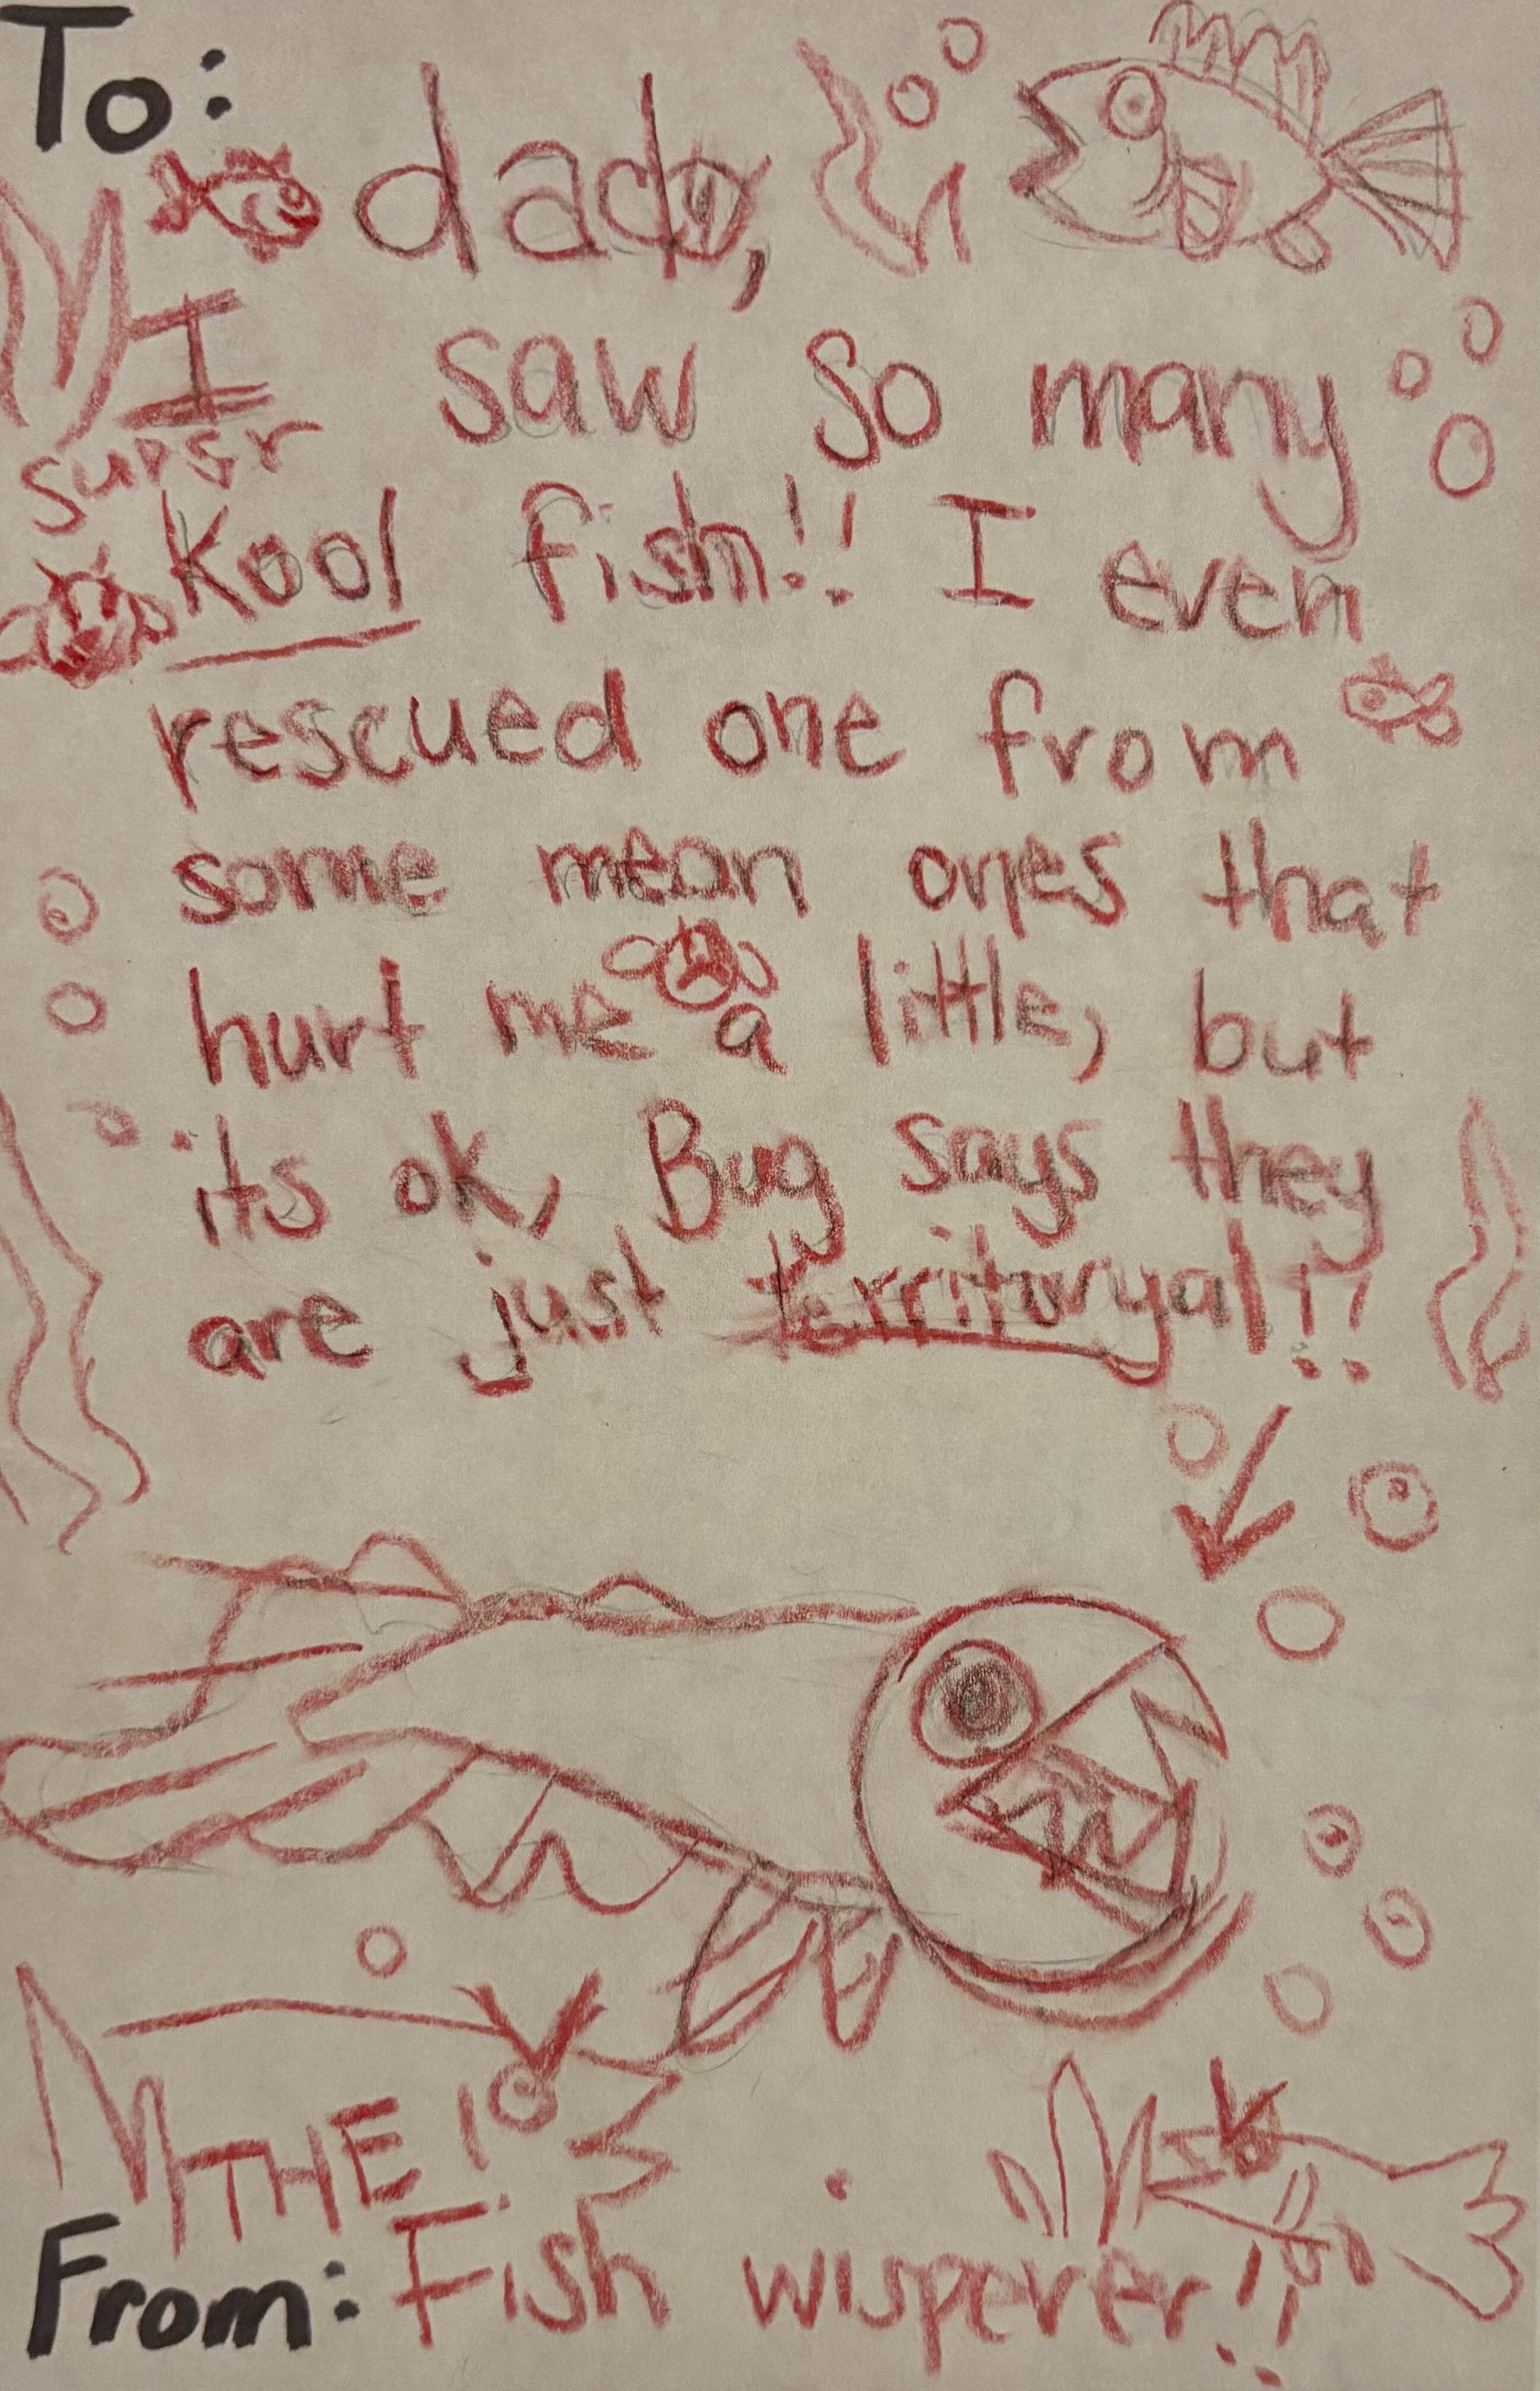 To:
dad,
I saw so many
super
Kool fish!! I even
rescued one from
some mean ones that
hurt me a little, but
its ok, Bug says they
are just territoryal!!
THE!
From: Fish wisperer!!